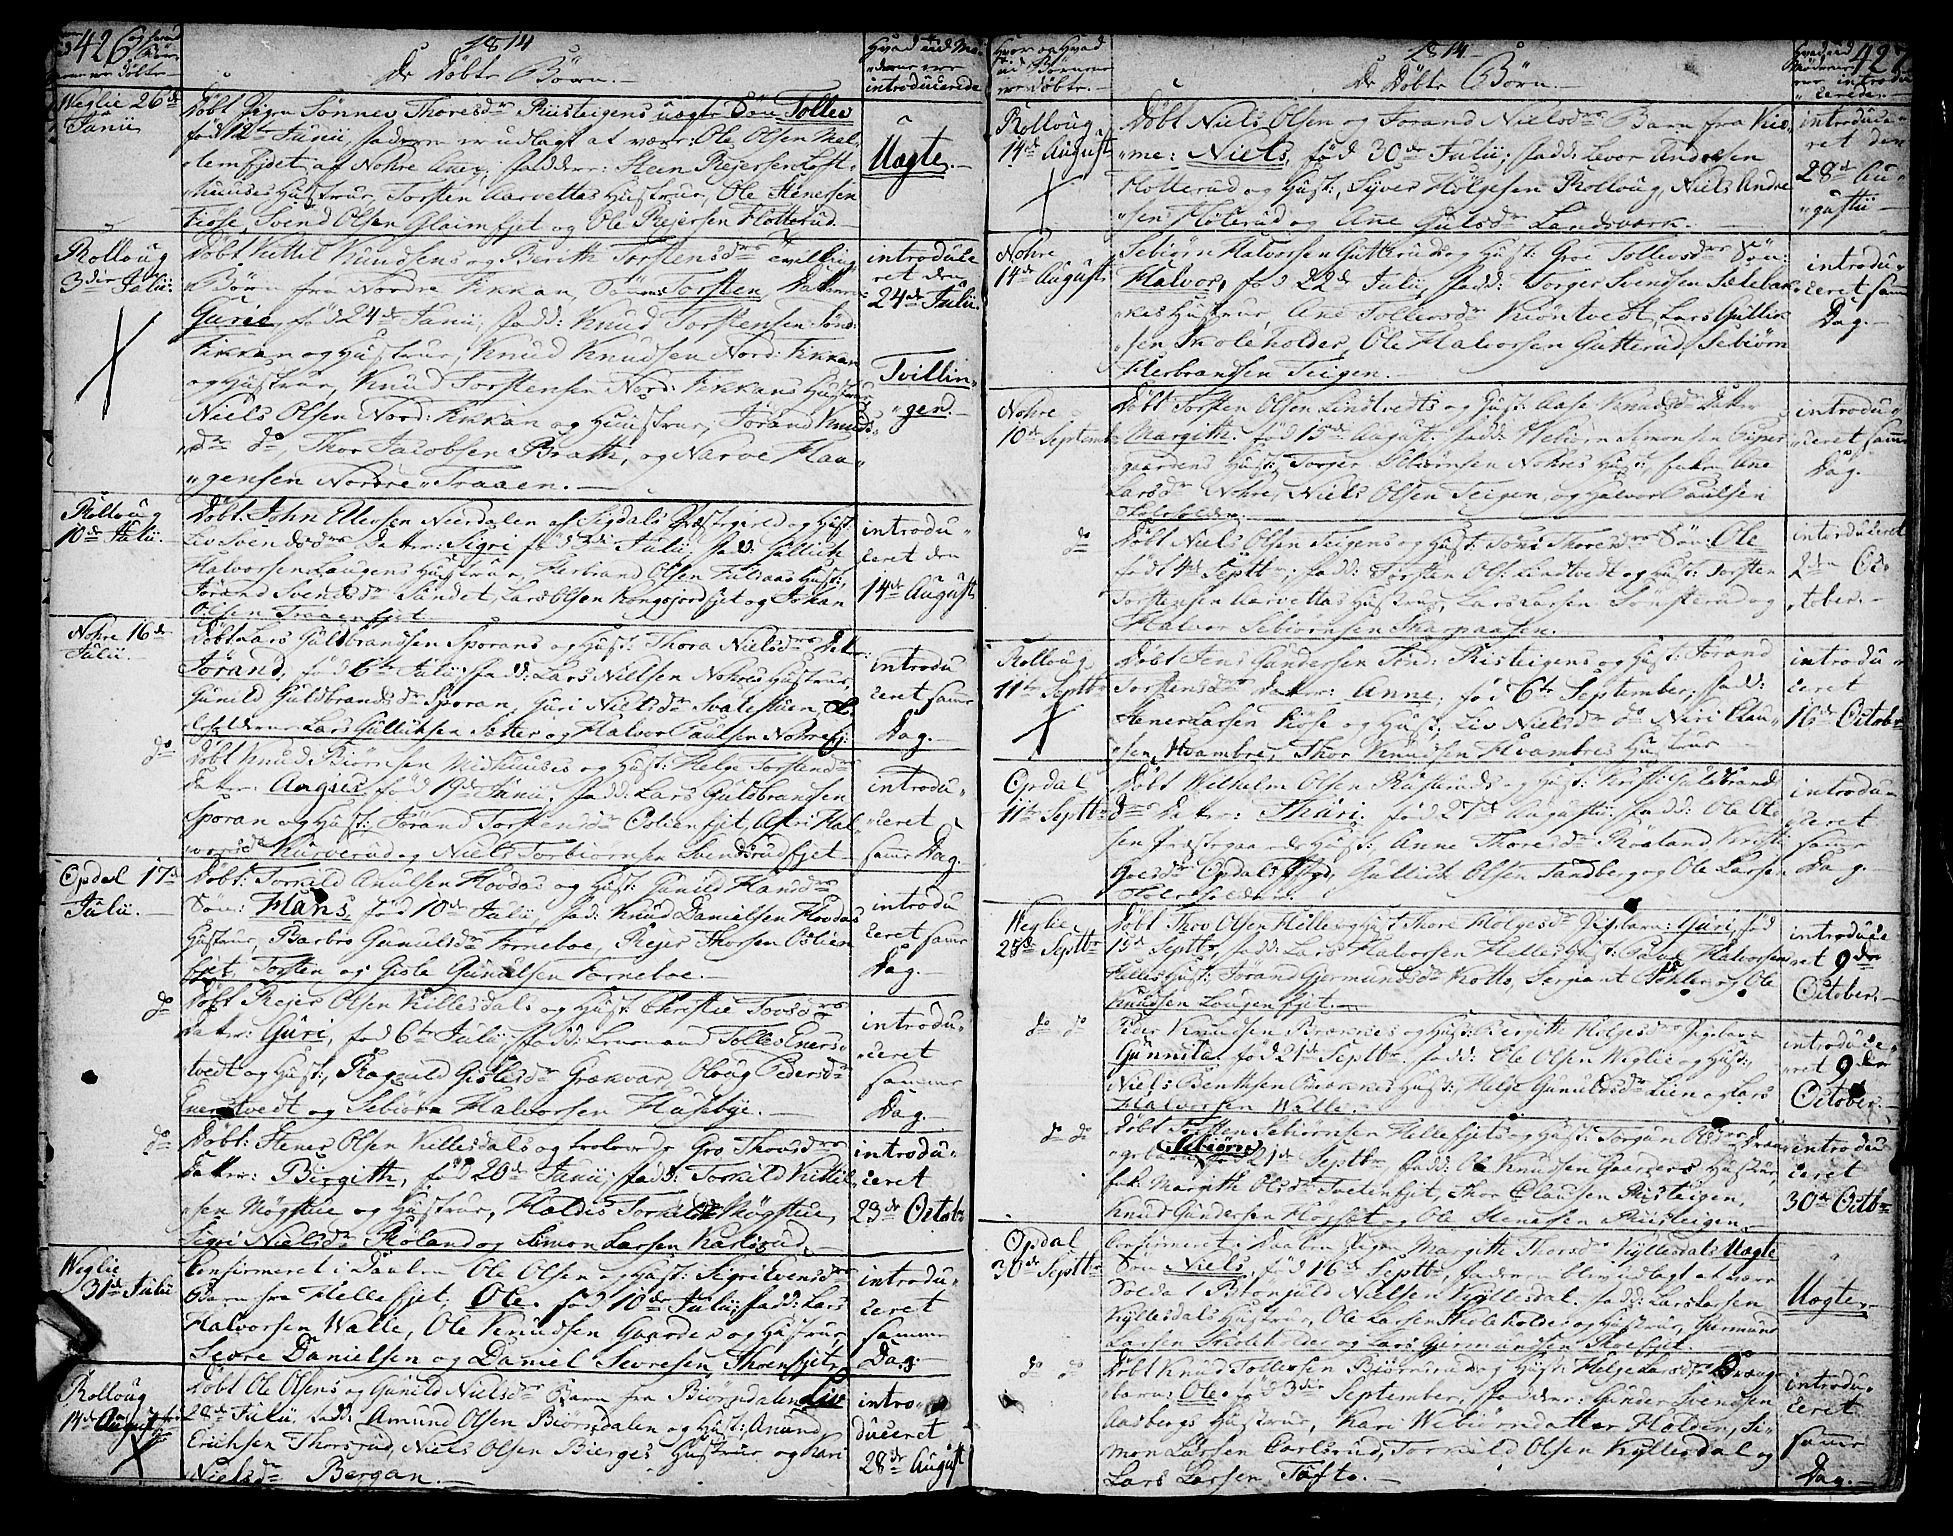 426
1814
De Döbte Börn.
Hvad tid Mö-
drene ere
introducerede
Weglie 26de
Junii
Döbt Pigen Sönnev Thoresdr Ruusteigens uægte Sön Tollev
föd 12te Junii, faderen er udlagt at være: Ole Olsen Mel-
lemfjdet af Nohre Ann; fadder: Steen Rejersen Loft-
huuses Hustrue, Torsten Aarvettas Hustrue, Ole Stenersen
Kiose, Svend Olsen Glaimfjet og Ole Rejersen Flotterud.
Uægte.
Rolloug
3die Julii.
Döbt Kittel Knudsens og Bereth Torstensdr Tvilling
Börn fra Nordre Fikkan, Sön Torsten, Datter
Gurie, föd 24de Junii, fadd: Knud Torstensen Sönd:
Fikkan og Hustrue, Knud Knudsen Nord: Fikkan
og Hustrue, Knud Torstensen Nord: Fikkans Hustrue
Niels Olsen Nord: Fikkan og Huustrue, Jörand Knuds-
dr do, Thor Jacobsen Brath, og Narve Haa-
gensen Nordre Traaen.
introduce
ret den
24de Julii.
Tvillin-
gend.
Rolloug
10de Julii.
Döbt John Olevsen Neerdalen af Sigdals Præstegield og Hust:
Liv Svendsdr Datter: Sigri föd 3die Julii; fadd: Gullick
Halvorsen Laugens Hustrue, Herbrand Olsen Juliaas Hust:
Jörand Svendsdr Sundet, Lars Olsen Kongsjordfjet og Johan
Olsen Traaenfjet.
introdu-
ceret den
14de August
Nohre 16de
Julii.
Döbt Lars Guldbrandsen Sporans og Hust: Thora Nielsdr Datter
Jörand, föd 6te Julii; fadd: Lars Nielsen Nohres Hustrue,
Gunild Guldbrandsdr Sporan, Guri Nielsdr Svalestuen,
Lars Gulliksen Sætter og Halvor Paulsen Nohrefj:
introdu
ceret samme
Dag.
do
Döbt Knud Biörnsen Midhuuses og Hust: Helge Torstensdr
Datter: Aagies, föd 19de Junii, fadd: Lars Guldbrandsen
Sporan og Hust: Jörand Torstensdr Oslienfjet, Astri Hal-
vorsdr Kurverud og Niels Torbiörnsen Svendsrudfjet.
introdu-
ceret
samme Dag.
Opdal 17de
Julii.
Döbt: Torkild Anulsen Hovdas og Hust: Gunild Hansdr
Sön: Hans, föd 10de Julii, fad: Knud Danielsen Hovdas
Hustrue, Barbro Gunulsdr Forneboe, Rejer Thorsen Oslien
fjet, Torsten og Gisle Gunulsen Forneboe.
introdu
ceret samme
Dag.
do
Döbt Rejer Olsen Killesdals og Hust: Christie Tovsdr
Datter: Guri, föd 6te Julii; fadd: Tolles Eners-
tvedt og Hust:, Ragnild Gislesdr Grækvard, Oloug Pedersdr
Enerstvedt og Sebiörn Halvorsen Husebye.
introdu-
ceret
samme
Dag.
do
Döbt: Stener Olsen Killesdals og trolovede Gro Thovsdr
Datter: Birgith, föd 20de Junii; fadd: Torkild Kittil-
sen Mögstue og Hustrue, Haldis Torkildsdr Mögstue,
Sigri Nielsdr Roland og Simon Larsen Karlsrud.
introdu-
ceret
23de Octobr
Weglie
31de Julii
Confirmeret i Daaben Ole Olsen og Hust: Sigri Evensdr
Barn fra Hellefjet, Ole, föd 10de Julii; fadd: Lars
Halvorsen Walle, Ole Knudsen Gaarder og Hustrue,
Sevre Danielsen og Daniel Sevresen Thorenfjet.
introdu-
ceret
samme
Dag.
Rolloug
14de August
Döbt Ole Olsens og Gunild Nielsdr Barn fra Biörndalen Liv
28de Julii, fadd: Amund Olsen Biörndalen og Hust: Anund
Erichsen Thorsrud, Niels Olsen Bierges Hustrue og Kari
Nielsdr Bergan.
intro-
duceret
28de August
1814
De Döbte Börn.
427
Hvor og Hvad
tid Börnene
ere döbte.
Hvad tid
Mödrene
ere introdu-
cerede.
Rolloug
14de August
Döbt Niels Olsen og Jörand Nielsdr Barn fra Kio-
me: Niels, föd 30de Julii; fadd: Levor Andersen
Flotterud og Hust:, Syver Helgesen Rolloug, Niels Andre
sen Floterud og Ane Gulsdr Landsverk.
introduce-
ret den
28de Au-
gustii
Nohre
14de August
Sebiörn Halvorsen Gutteruds og Hust: Groe Tollevsdr Sön:
Halvor, föd 22de Julii, fadd: Torger Svendsen Sætebak-
kes Hustrue, Ane Tollevsdr Kiöntvedt, Lars Gullik
sen Skoleholder, Ole Halvorsen Gutterud, Sebiörn
Herbrandsen Teigen.
introdu-
ceret samme
Dag.
Nohre
10de Septembr
Döbt Torsten Olsen Lindtvedts og Hust: Aase Knudsdr Datter
Margith. föd 15de August. fadd: Webiörn Simonsen
gaardens Hust: Torger Sebiörnsen Nohres Hust: Ane
Larsdr Nohre, Niels Olsen Teigen, og Halvor Paulsen
introdu-
ceret samme
Dag.
do
Döbt Niels Olsen Teigens og Hust: Töni Thoresdr Sön: Ole
föd 4de Septbr; fadd: Torsten Ols: Lindtvedt og Hust: Torsten
Torstensen Aarvettas Hustrue, Lars Larsen Sönsterud og
Halvor Sebiörnsen Skarpaasen.
introduceret
2den Oc-
tober.
Rolloug
11te Septbr
Döbt Jens Gundersen Sönd: Ruusteigens og Hust: Jörand
Torstensdr Datter: Anne, föd 6te September; fadd:
Stener Larsen Kiose og Hust: Liv Nielsdr do Niri Clau-
sen Hvambre, Thor Knudsen Hvambres Hustrue
introdu-
ceret
16de October
Opdal
11te Septbr
Döbt Wilhelm Olsen Rusteruds og Hust: Kirsti Guldbrands
dr Datter: Thuri. föd 27de Augustii. fadd: Ole Ole
sen Præstegaardes Hust: Anne Thoresdr Roeland Kristi
Opdals, Gullick Olsen Tandberg og Ole Larsen
Skoleholder.
introdu-
ceret
samme
Dag.
Weglie
25de Septbr
Döbt Thov Olsen Helle og Hust Thore Holgesdr Pigebarn: Guri, föd
15de Septbr, fadd: Lars Halvorsen Helles Hust: Paul Halvorsen
Helles Hust: Jorand Germundsdr Kotte, Sergiant Dahler og Ole
Knudsen Lougenfjet.
introduce
ret 9de
October.
do do
Peder Knudsen Brænnes og Hust: Bergith Helgesdr Pigebarn
Gunnild, föd 21de Septbr. fadd: Ole Olsen Weglie og Hust:
Niels Benthsen Braknes Hust: Helge Gunuldsdr Lien og Lars
Halvorsen Walle.
introduce-
ret 9de
October.
do do
Döbt Torsten Sebiörnsen Hellefjets og Hust: Torgun Olsdr Dren-
gebarn Sebiörn föd 21de Septbr, fadd: Ole Knudsen Gaarders Hustrue,
Margith Olsdr Tveitenfjet, Thor Clausen Ruusteigen,
Knud Gundersen Hofset og Ole Stenersen Ruusteigen.
introdu
ceret
30de Octbr
Opdal
30de Septbr
Confirmeret i Daaben Pigen Margith Thorsdr Kyllesdals Uægte
Sön Niels, föd 16de Septbr, faderen blev udlagt at være
Soldat Bionjuld Nielsen Kyllesdal. fadd: Lars Larsen
Kyllesdals Hustrue, Ole Larsen Skoleholder og Hustrue, Germund
Larsen Skoleholder og Lars Germundsen Stoefjet.
Uægte.
do do
Döbt Knud Tollevsen Biörneruds og Hust: Helge Larsdr Drenge
barn: Ole, föd 3die September, fadderne: Gunder Svendsen
Aasbergs Hustrue, Kari Webiörnsdatter Holden, Si-
mon Larsen Carlsrud, Torkild Olsen Kyllesdal og
Lars Larsen Tofte.
introdu-
ceret
samme
Dag.